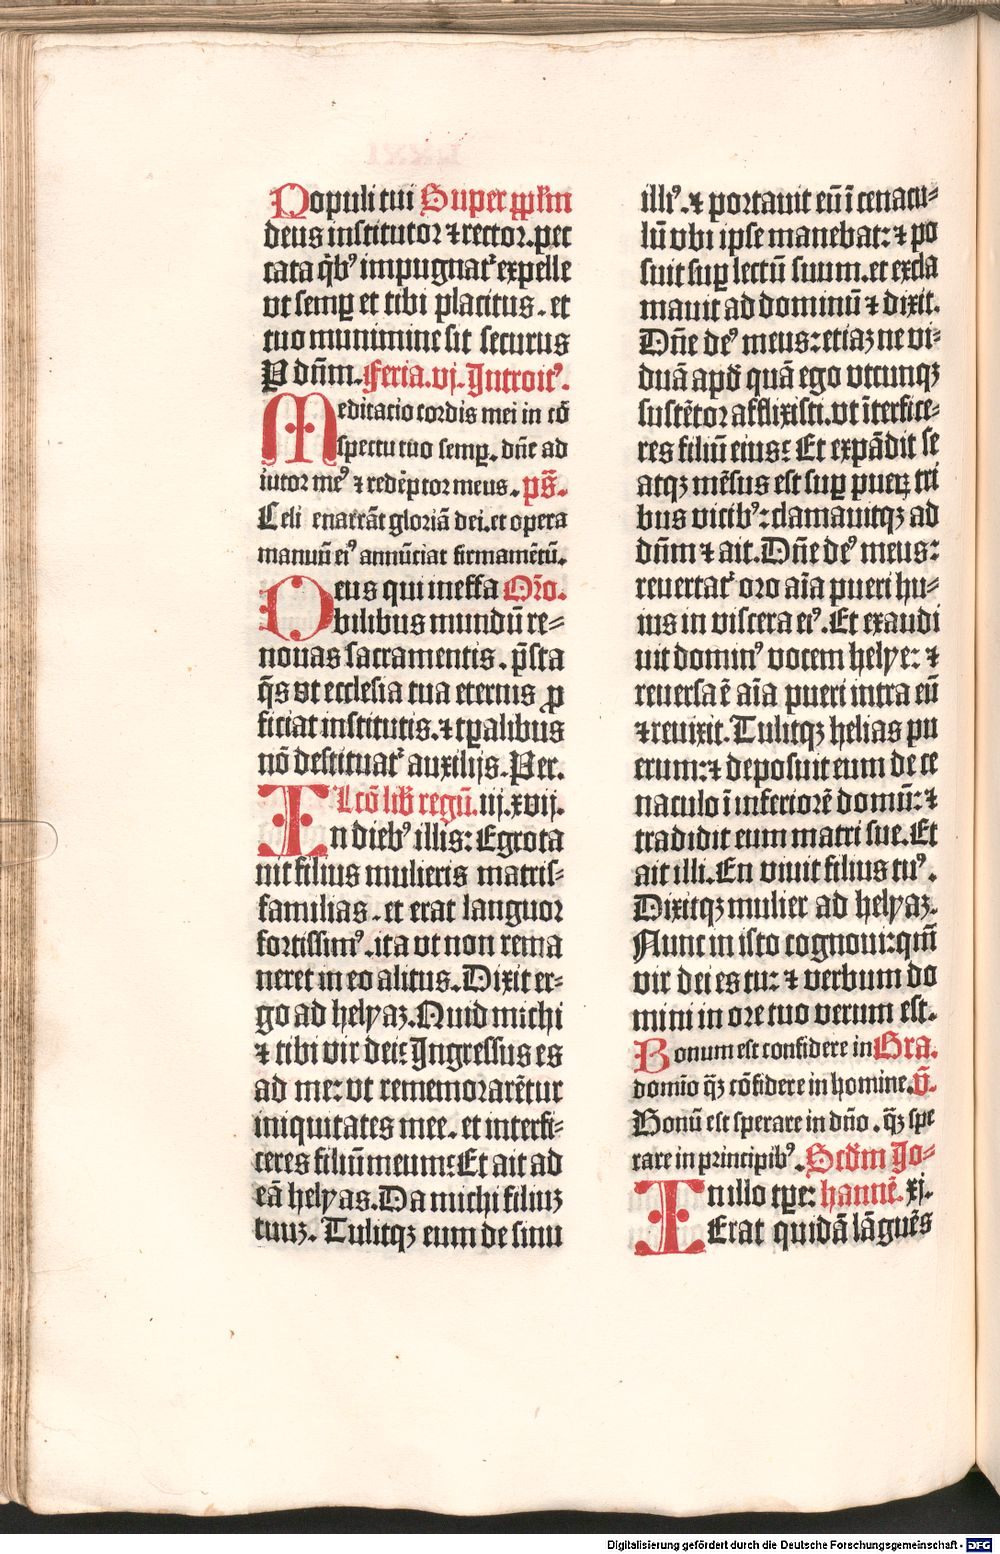 Populi tui Super ppl̄m
deus institutor ⁊ rector. pec
cata q̄bꝰ impugnat᷑ expelle
vt semꝑ et tibi placitus . et
tuo munimine sit securus
P dn̄m. Feria. vj. Introitꝰ.
Meditacio cordis mei in cō
spectu tuo semꝑ. dn̄e ad
iutor meꝰ ⁊ redēptor meus . ps̄.
Celi enarrāt gloriā dei. et opera
manuū eiꝰ annūciat firmamētū.
Deus qui ineffa Or̄o.
bilibus mundū re⸗
nouas sacramentis . p̄sta
q̄s vt ecclesia tua eternis ꝓ
ficiat institutis. ⁊ tꝑalibus
nō destituat᷑ auxilijs. Per.
Lcō lib̄ regū. iij. xvij.
In diebꝰ illis: Egrōta
uit filius mulieris matris⸗
familias . et erat languor
fortissimꝰ . ita vt non rema
neret in eo alitus. Dixit er⸗
go ad helyaꝫ. Quid michi
⁊ tibi vir dei: Ingressus es
ad me: vt rememorarētur
iniquitates mee . et interfi⸗
ceres filiū meum: Et ait ad
eā helyas. Da michi filiuꝫ
tuuꝫ. Tulitqꝫ eum de sinu
illiꝰ . ⁊ portauit eū ī cenacu⸗
lū vbi ipse manebat: ⁊ po
suit suꝑ lectū suum. et excla
mauit ad dominū ⁊ dixit.
Dn̄e deꝰ meus: etiaꝫ ne vi⸗
duā apd̄ quā ego vtcunqꝫ
sustētor afflixisti. vt īterfice⸗
res filiū eius: Et expādit se
atqꝫ mēsus est suꝑ pueꝝ tri
bus vicibꝰ: clamauitqꝫ ad
dn̄m ⁊ ait. Dn̄e deꝰ meus:
reuertat᷑ oro aīa pueri hu⸗
ius in viscera eiꝰ. Et exaudi
uit dominꝰ vocem helye: ⁊
reuersa ē aīa pueri intra eū
⁊ reuixit. Tulitqꝫ helias pu
erum: ⁊ deposuit eum de ce
naculo ī inferiorē domū: ⁊
tradidit eum matri sue. Et
ait illi. En viuit filius tuꝰ .
Dixitqꝫ mulier ad helyaꝫ.
Nunc in isto cognoui: qm̄
vir dei es tu: ⁊ verbum do
mini in ore tuo verum est.
Bonum est confidere in Gra.
domīo q̄ꝫ cōfidere in homine. v̄.
Bonū est sperare in dn̄o . q̄ꝫ spe
rare in principibꝰ. Scd̄m Jo⸗
In illo tꝑe: hannē. xj.
Erat quidā lāguēs
Digitalisierung gefördert durch die Deutsche Forschungsgemeinschaft - DFG